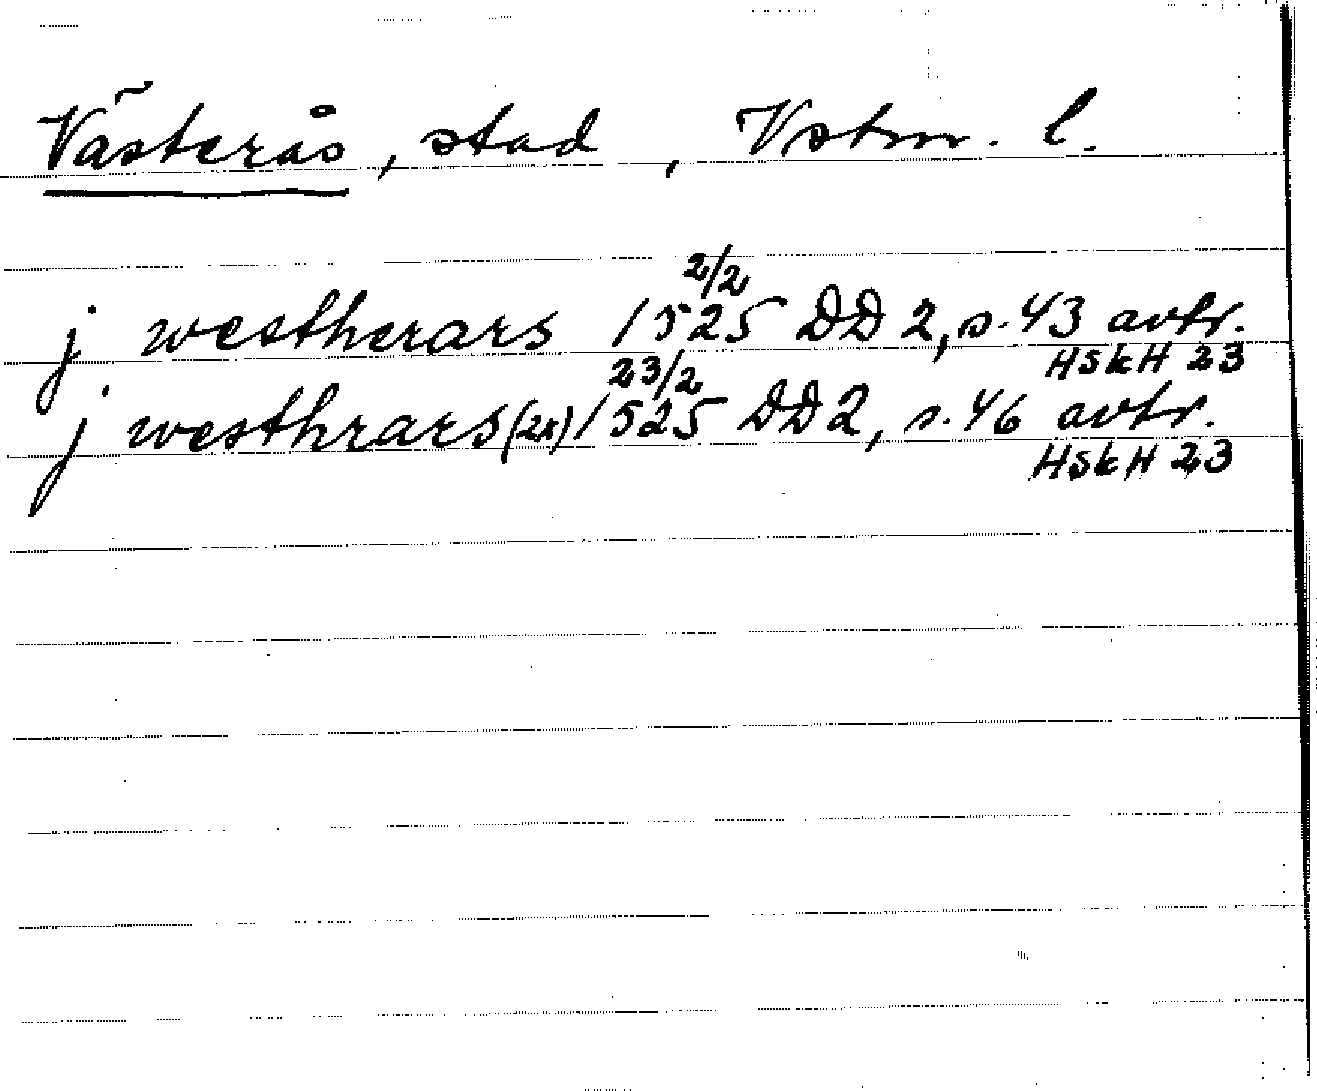 Västerås, stad, Vstm. l.
j westherars 1525 2/2 DD 2, s. 43 avtr.
HSkH 23
j westhrars (2x) 1525 23/2 DD 2, s. 46 avtr.
HSkH 23